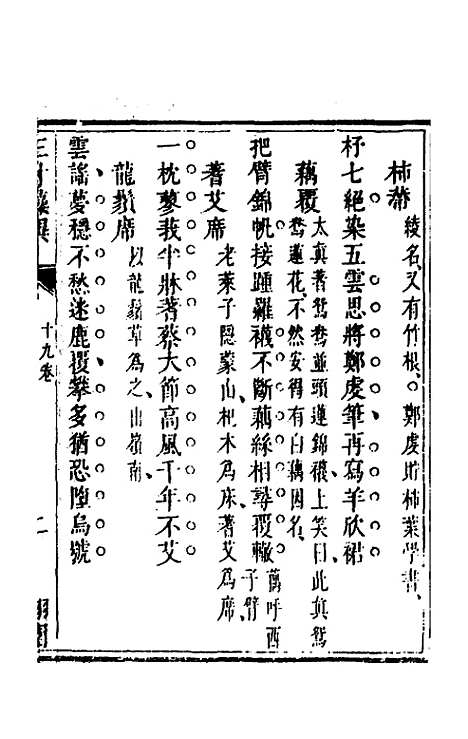 柿蔕 綾名又有竹根、○鄭虔貯柿葉學書、
杼七絕染五雲思將鄭虔筆再寫羊欣裙
藕覆 太真著鴛鴦並頭蓮錦襪上笑曰此真鴛鴦蓮花、不然安得有白藕因名、
把臂錦帆接踵羅襪不斷藕絲相尋覆轍 萬呼西子臂
蓍艾席 老萊子隱蒙山枇木為床、蓍艾為席、
一枕蓼莪半牀蓍蔡大節高風千年不艾
龍鬚席 以龍鬚草為之、出嶺南、
雲謠夢穩不愁迷鹿覆攀多猶恐墮烏號
十九卷
二